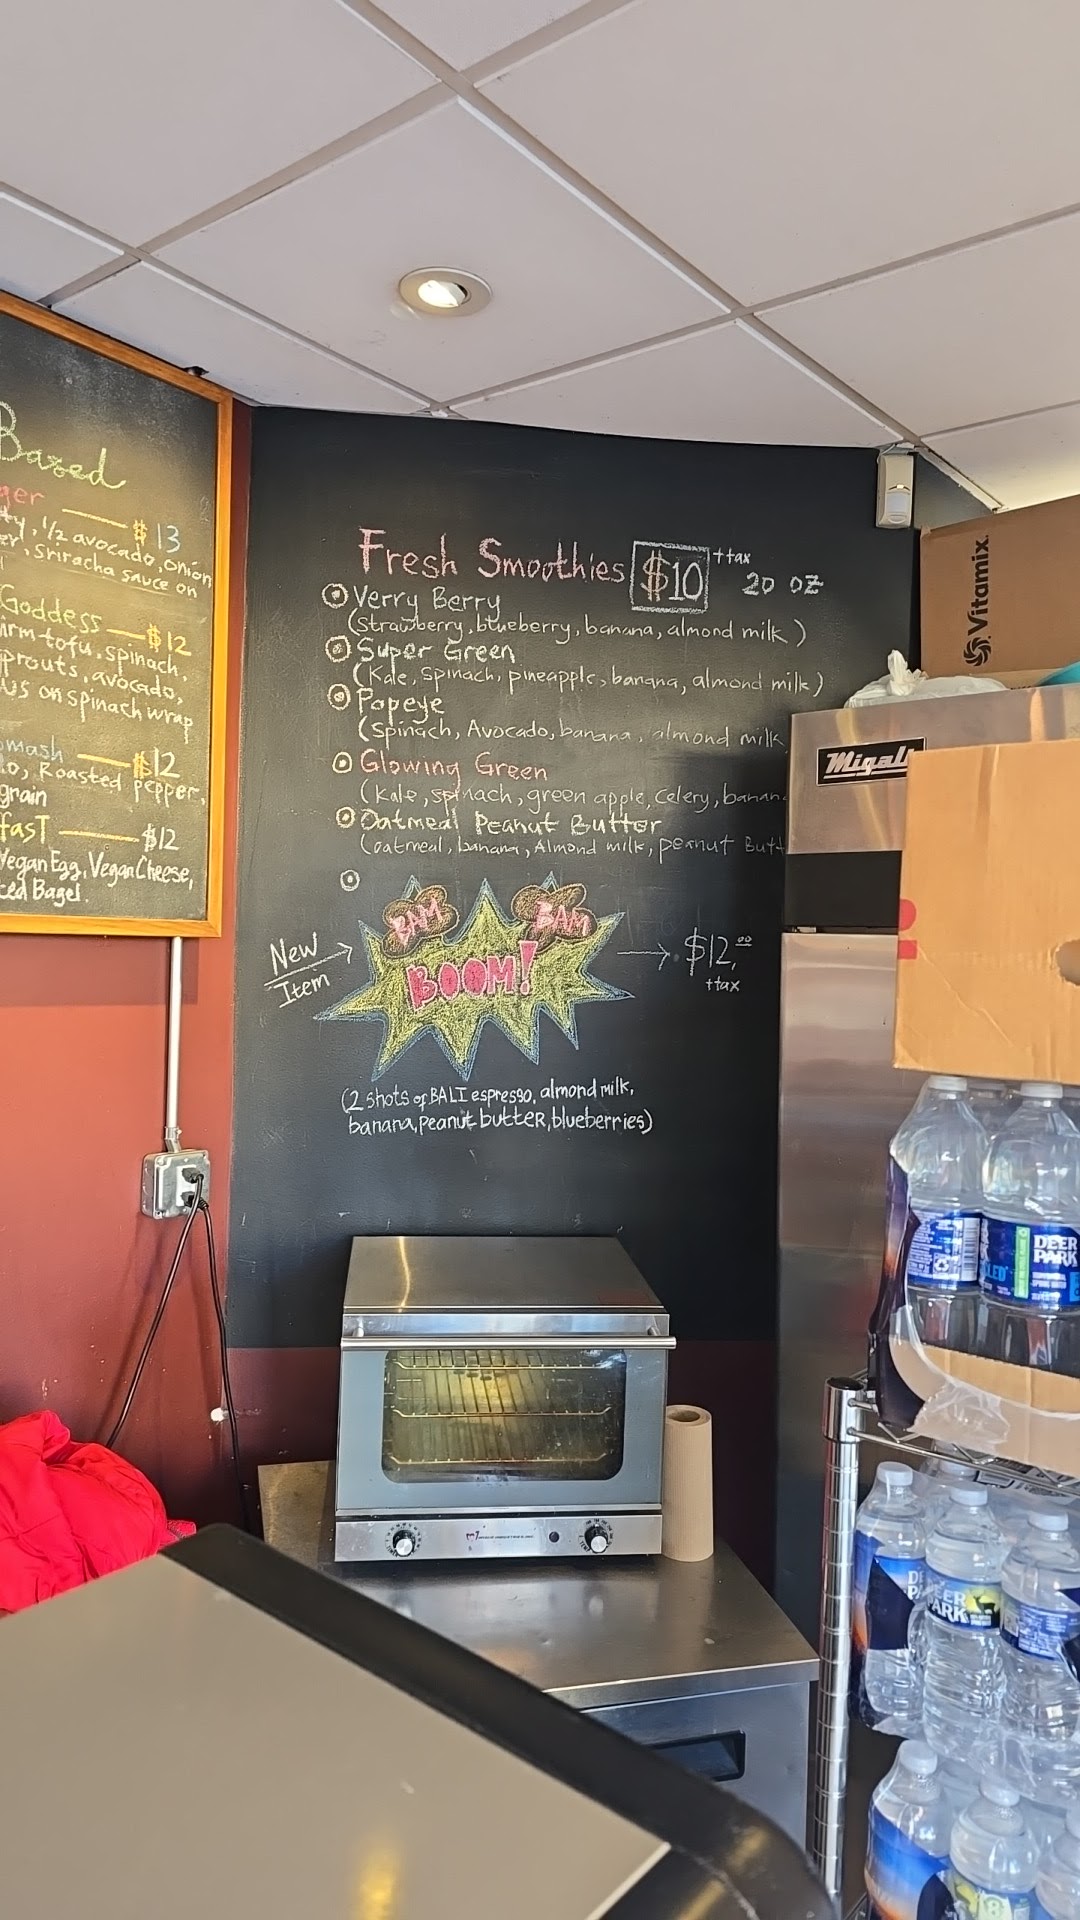 Based
ger — $13
ty, 1/2 avocado, onion
er, Sriracha sauce on
Goddess — $12
irm tofu, spinach,
prouts, avocado,
us on spinach wrap
mash — $12
o, Roasted pepper,
grain
fasT — $12
Vegan Egg, Vegan Cheese,
ced Bagel.
Fresh Smoothies $10 +tax
20 oz
Verry Berry
(strawberry, blueberry, banana, almond milk)
Super Green
(Kale, spinach, pineapple, banana, almond milk)
Popeye
(Spinach, Avocado, banana, almond milk
Glowing Green
(Kale, spinach, green apple, celery, banan
Oatmeal Peanut Butter
(oatmeal, banana, Almond milk, peanut Butt
New
Item
BAM
BAM
BOOM!
$12.00
+tax
(2 shots of BALI espresso, almond milk,
banana, peanut butter, blueberries)
Vitamix
Migali
DEER
PARK
DEER
PARK